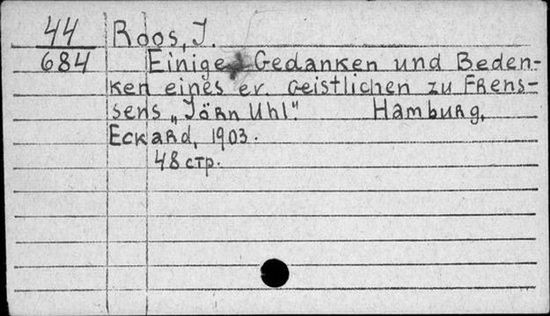 44 Roos, J.
684 Einige Gedanken und Beden-
ken eines ev. Geistlichen zu Frens-
sens „Jörn Uhl“. Hamburg,
Eckard, 1903.
48 стр.